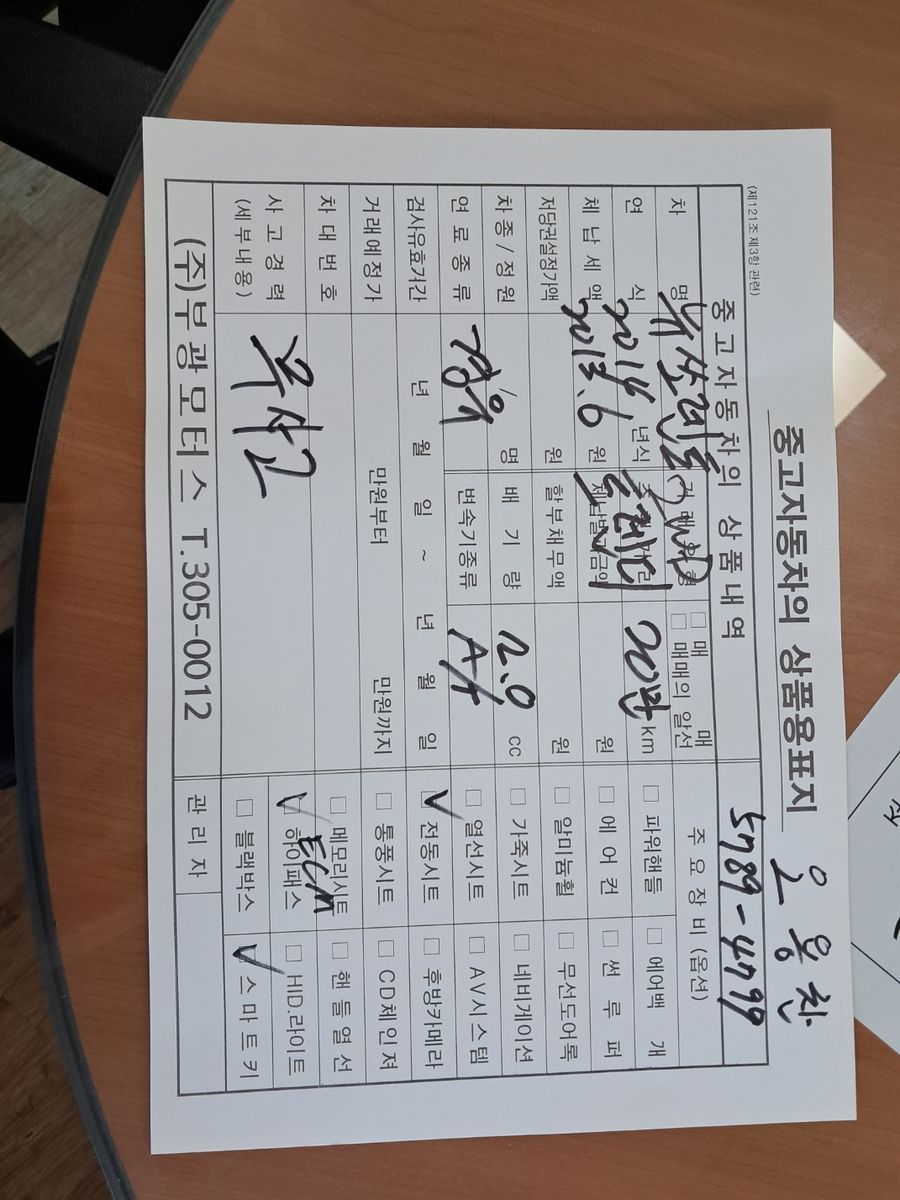 (제121조 제3항 관련)
중고자동차의 상품용표지
오용찬
5789-4799
중고자동차의 상품내역
주요장비(옵션)
차 명 뉴쏘렌토R 2WD □ 매 매
□ 매매의 알선
연 식 2014 년식 20만 km
2013.6 트렌디
체납세액 원 원
저당권설정가액 원 할부채무액 원
차종/정원 명 배기량 2.0 cc
연료종류 경유 변속기종류 A/t
검사유효기간 년 월 일 ~ 년 월 일
거래예정가 만원부터 만원까지
차대번호
사고경력
(세부내용) 무사고
□ 파워핸들 □ 에어백 개
□ 에 어 컨 □ 썬 루 퍼
□ 알미늄휠 □ 무선도어록
□ 가죽시트 □ 네비게이션
□ 열선시트 □ AV시스템
✓ 전동시트 □ 후방카메라
□ 통풍시트 □ CD체인져
□ 메모리시트 □ 핸들열선
ECM
✓ 하이패스 □ HID.라이트
□ 블랙박스 ✓ 스마트키
(주)부광모터스 T.305-0012
관리자